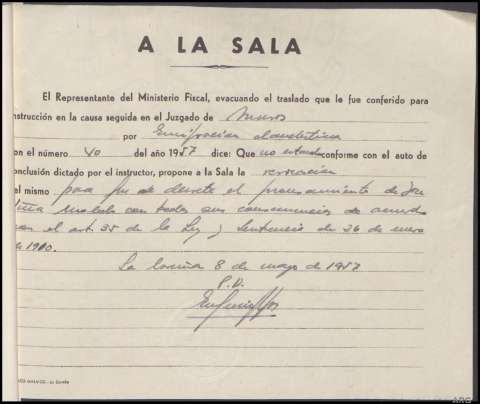 A LA SALA
El Representante del Ministerio Fiscal, evacuando el traslado que le fue conferido para
nstrucción en la causa seguida en el Juzgado de Muros
por Emigración clandestina
on el número 40 del año 1957 dice: Que no estando conforme con el auto de
onclusión dictado por el instructor, propone a la Sala la revocación
el mismo para que se decrete el procesamiento de José
con todas sus consecuencias de acuerdo
con el art. 35 de la Ley y Sentencia de 26 de enero
de 1900.
La Coruña 8 de mayo de 1957
P.D.